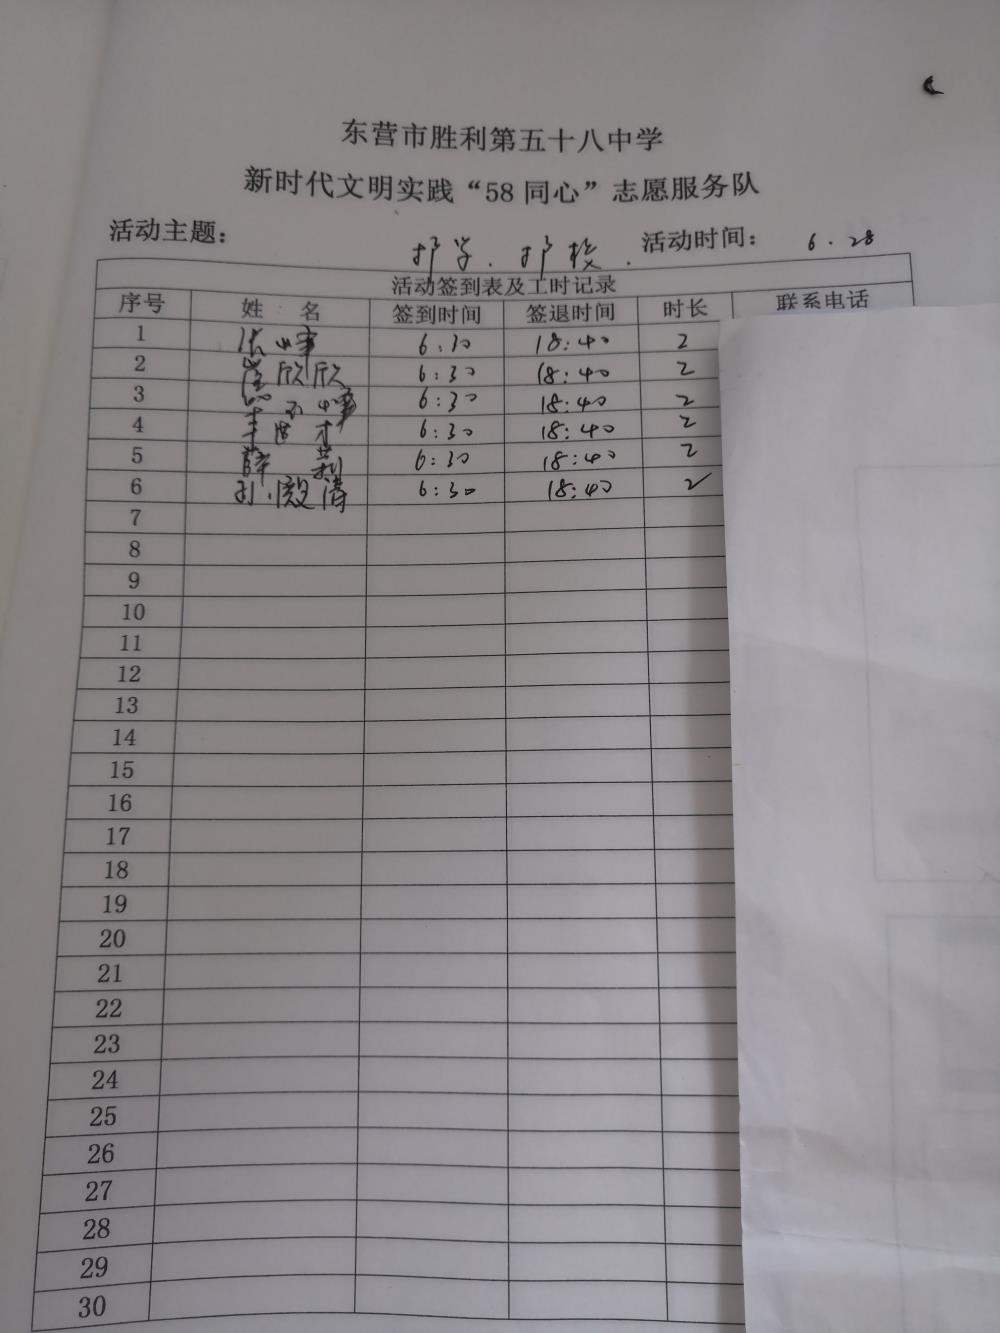 东营市胜利第五十八中学
新时代文明实践“58同心”志愿服务队
活动主题： 护学．护校． 活动时间： 6．28
活动签到表及工时记录
序号 姓 名 签到时间 签退时间 时长 联系电话
1 6:30 18:40 2
2 欣欣 6:30 18:40 2
3 6:30 18:40 2
4 6:30 18:40 2
5 薛 莉 6:30 18:40 2
6 6:30 18:40 2
7
8
9
10
11
12
13
14
15
16
17
18
19
20
21
22
23
24
25
26
27
28
29
30